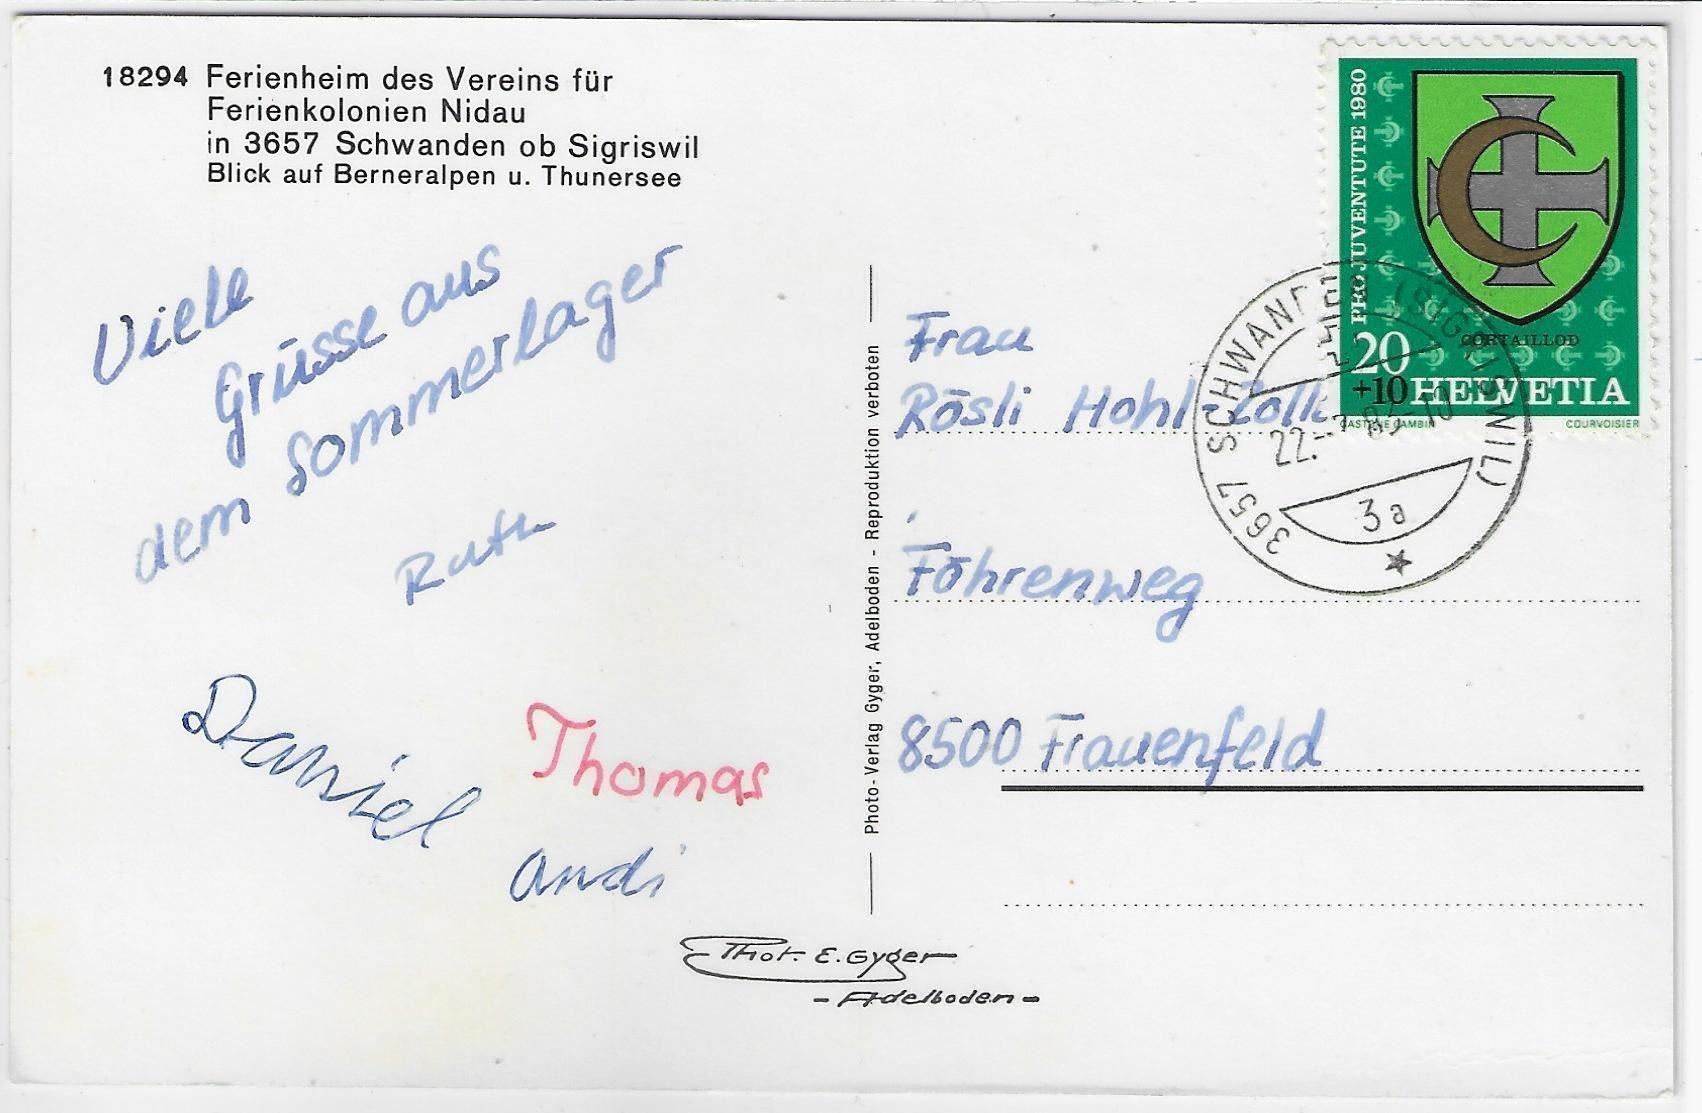 18294 Ferienheim des Vereins für
Ferienkolonien Nidau
in 3657 Schwanden ob Sigriswil
Blick auf Berneralpen u. Thunersee
Viele
Grüsse aus
dem Sommerlager
Ruth
Daniel
Thomas
Andi
Phot. E. Gyger
- Adelboden -
Photo-Verlag Gyger, Adelboden - Reproduktion verboten
Frau
Rösli Hohl-
Föhrenweg
8500 Frauenfeld
PRO JUVENTUTE 1980
CORTAILLOD
20
+10 HELVETIA
GASTONE CAMBIN
COURVOISIER
3657 SCHWANDEN (SIGRISWIL)
22.
3a